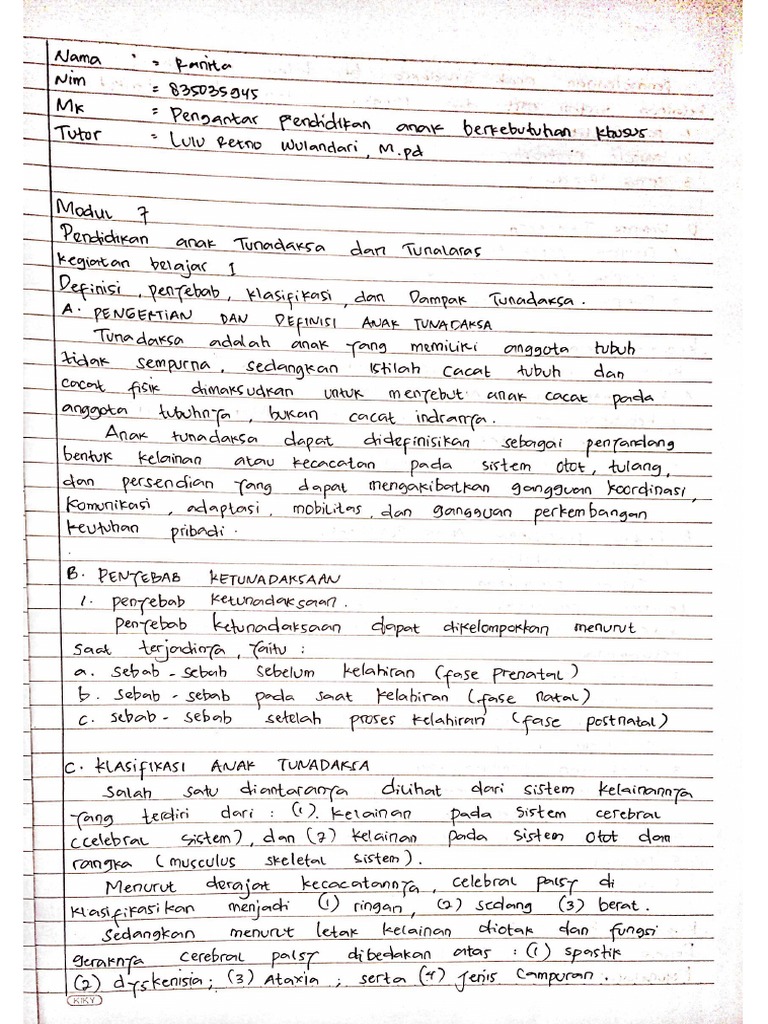 Nama : = Ranita
Nim = 835035945
Mk = Pengantar pendidikan anak berkebutuhan khusus
Tutor = Lulu Retno Wulandari, M.pd
Modul 7
Pendidikan anak Tunadaksa dan Tunalaras
kegiatan belajar 1
Definisi, penyebab, klasifikasi, dan Dampak Tunadaksa.
A. PENGERTIAN DAN DEFINISI ANAK TUNADAKSA
Tunadaksa adalah anak yang memiliki anggota tubuh
tidak sempurna, sedangkan istilah cacat tubuh dan
cacat fisik dimaksudkan untuk menyebut anak cacat pada
anggota tubuhnya, bukan cacat indranya.
Anak tunadaksa dapat didefinisikan sebagai penyandang
bentuk kelainan atau kecacatan pada sistem otot, tulang,
dan persendian yang dapat mengakibatkan gangguan koordinasi,
komunikasi, adaptasi, mobilitas, dan gangguan perkembangan
keutuhan pribadi.
B. PENYEBAB KETUNADAKSAAN
1. penyebab ketunadaksaan.
penyebab ketunadaksaan dapat dikelompokkan menurut
saat terjadinya, yaitu :
a. sebab - sebab sebelum kelahiran (fase prenatal)
b. sebab - sebab pada saat kelahiran (fase natal)
c. sebab - sebab setelah proses kelahiran (fase postnatal)
C. KLASIFIKASI ANAK TUNADAKSA
Salah satu diantaranya dilihat dari sistem kelainannya
yang terdiri dari : (1). kelainan pada sistem cerebral
(celebral sistem), dan (2) kelainan pada sistem otot dan
rangka (musculus skeletal sistem).
Menurut derajat kecacatannya, celebral palsy di
klasifikasikan menjadi (1) ringan, (2) sedang (3) berat.
Sedangkan menurut letak kelainan diotak dan fungsi
geraknya cerebral palsy dibedakan atas : (1) spastik
(2) dyskenisia; (3) Ataxia; serta (4) jenis campuran.
KIKY